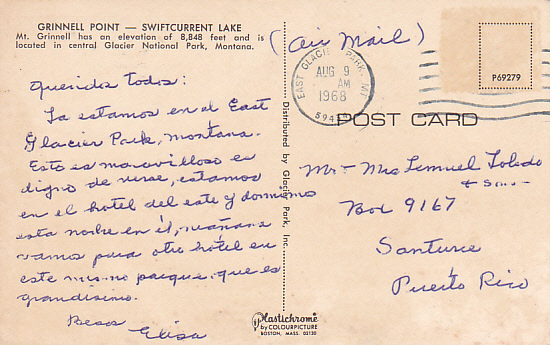 GRINNELL POINT — SWIFTCURRENT LAKE
Mt. Grinnell has an elevation of 8,848 feet and is
located in central Glacier National Park, Montana.
(Air Mail)
EAST GLACIER PARK, MT
AUG 9
AM
1968
P69279
POST CARD
Queridos todos:
Ya estamos en el East
Glacier Park, Montana.
Esto es maravilloso es
digno de verse, estamos
en el hotel del este y dormimos
esta noche en él, mañana
vamos para otro hotel en
este mismo parque, que es
grandísimo.
Besos
Elisa
Distributed by Glacier Park, Inc.
Mr – Mrs Lemuel Toledo
& Sons
Box 9167
Santurce
Puerto Rico
Plastichrome
by COLOURPICTURE
BOSTON, MASS. 02130